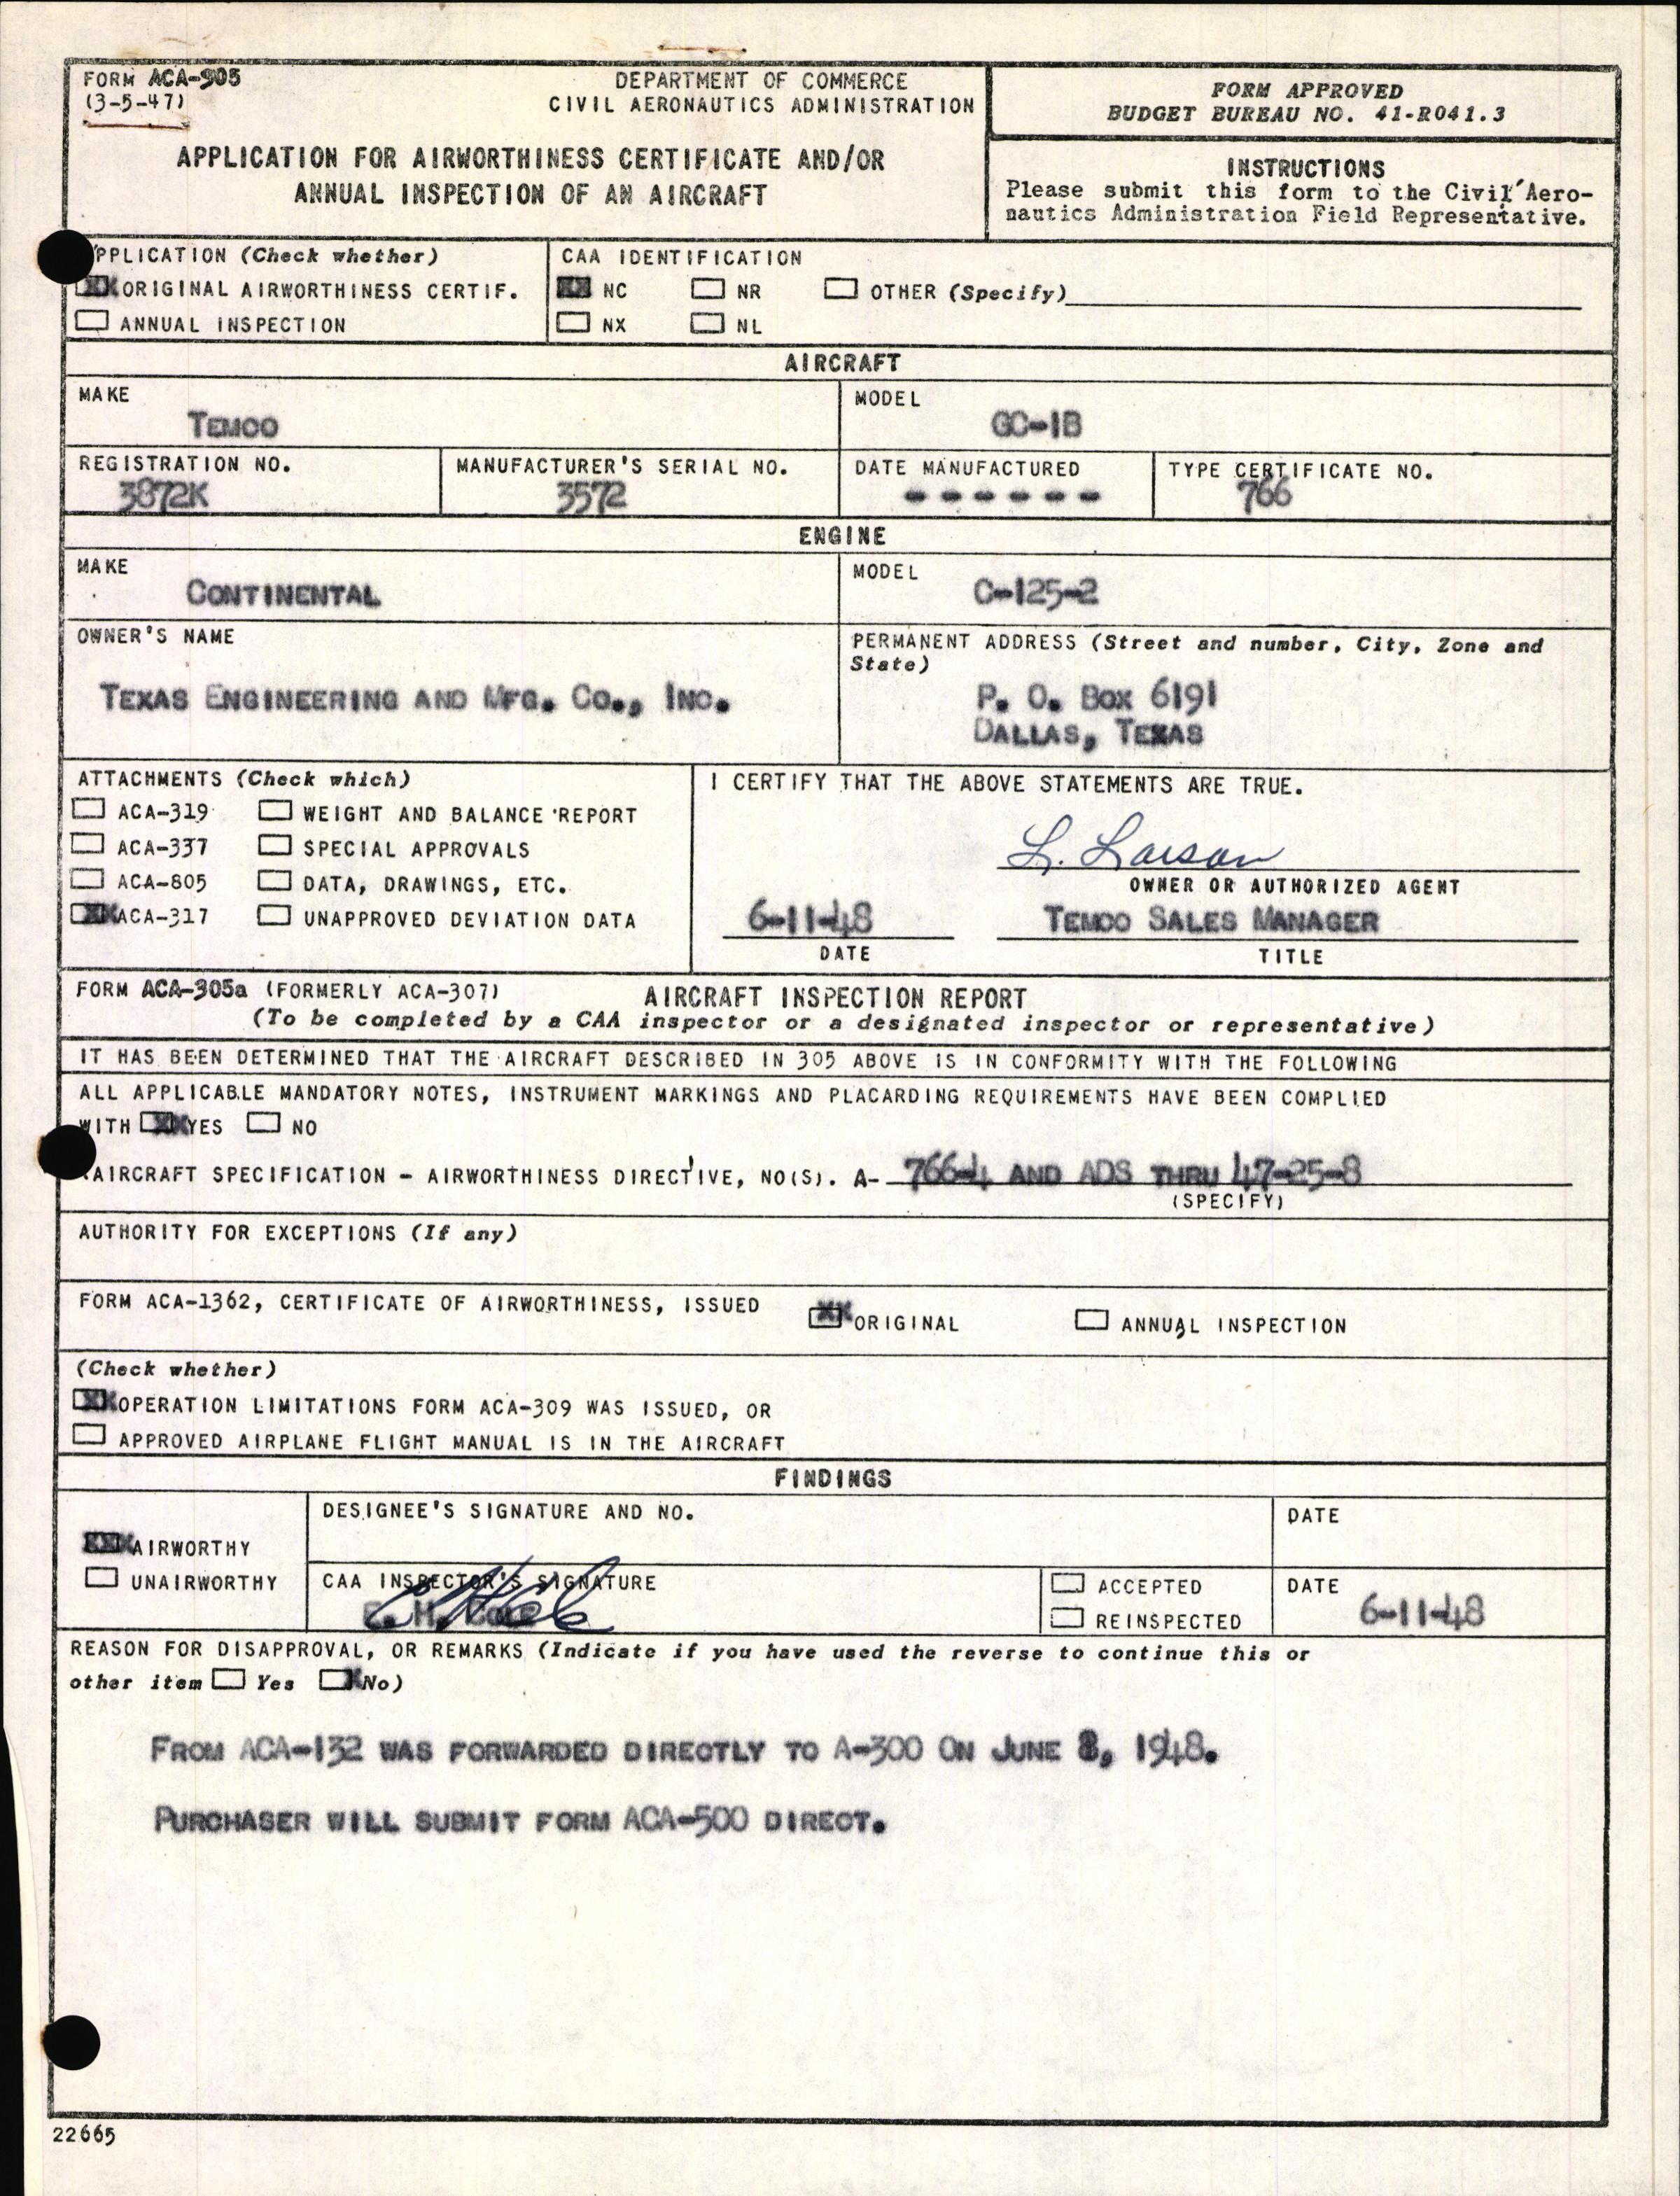 FORM ACA-305
(3-5-47)
DEPARTMENT OF COMMERCE
CIVIL AERONAUTICS ADMINISTRATION
APPLICATION FOR AIRWORTHINESS CERTIFICATE AND/OR
ANNUAL INSPECTION OF AN AIRCRAFT
FORM APPROVED
BUDGET BUREAU NO. 41-R041.3
INSTRUCTIONS
Please submit this form to the Civil Aero-
nautics Administration Field Representative.
PPLICATION (Check whether)
XX ORIGINAL AIRWORTHINESS CERTIF.
ANNUAL INSPECTION
CAA IDENTIFICATION
XX NC NR OTHER (Specify)
NX NL
AIRCRAFT
MAKE
TEMCO
MODEL
GC-1B
REGISTRATION NO.
3872K
MANUFACTURER'S SERIAL NO.
3572
DATE MANUFACTURED
- - - - - -
TYPE CERTIFICATE NO.
766
ENGINE
MAKE
CONTINENTAL
MODEL
C-125-2
OWNER'S NAME
TEXAS ENGINEERING AND MFG. CO., INC.
PERMANENT ADDRESS (Street and number, City, Zone and
State)
P. O. BOX 6191
DALLAS, TEXAS
ATTACHMENTS (Check which)
ACA-319 WEIGHT AND BALANCE REPORT
ACA-337 SPECIAL APPROVALS
ACA-805 DATA, DRAWINGS, ETC.
XX ACA-317 UNAPPROVED DEVIATION DATA
I CERTIFY THAT THE ABOVE STATEMENTS ARE TRUE.
L. Larson
OWNER OR AUTHORIZED AGENT
6-11-48
DATE
TEMCO SALES MANAGER
TITLE
FORM ACA-305a (FORMERLY ACA-307)
AIRCRAFT INSPECTION REPORT
(To be completed by a CAA inspector or a designated inspector or representative)
IT HAS BEEN DETERMINED THAT THE AIRCRAFT DESCRIBED IN 305 ABOVE IS IN CONFORMITY WITH THE FOLLOWING
ALL APPLICABLE MANDATORY NOTES, INSTRUMENT MARKINGS AND PLACARDING REQUIREMENTS HAVE BEEN COMPLIED
WITH XX YES NO
AIRCRAFT SPECIFICATION - AIRWORTHINESS DIRECTIVE, NO(S). A- 766-4 AND ADS THRU 47-25-8
(SPECIFY)
AUTHORITY FOR EXCEPTIONS (If any)
FORM ACA-1362, CERTIFICATE OF AIRWORTHINESS, ISSUED XX ORIGINAL ANNUAL INSPECTION
(Check whether)
XX OPERATION LIMITATIONS FORM ACA-309 WAS ISSUED, OR
APPROVED AIRPLANE FLIGHT MANUAL IS IN THE AIRCRAFT
FINDINGS
XXX AIRWORTHY
UNAIRWORTHY
DESIGNEE'S SIGNATURE AND NO.
DATE
CAA INSPECTOR'S SIGNATURE
E. H. COLE
ACCEPTED
REINSPECTED
DATE
6-11-48
REASON FOR DISAPPROVAL, OR REMARKS (Indicate if you have used the reverse to continue this or
other item Yes X No)
FROM ACA-132 WAS FORWARDED DIRECTLY TO A-300 ON JUNE 8, 1948.
PURCHASER WILL SUBMIT FORM ACA-500 DIRECT.
22665